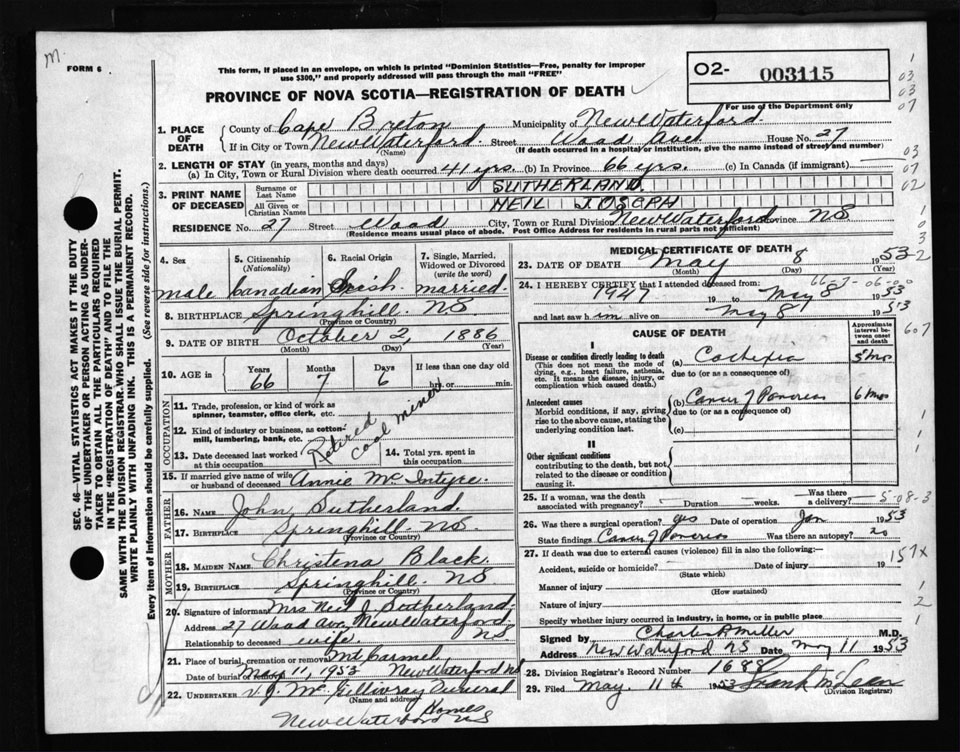 M.
FORM 6
This form, if placed in an envelope, on which is printed "Dominion Statistics—Free, penalty for improper
use $300," and properly addressed will pass through the mail "FREE"
O2- 003115
For use of the Department only
PROVINCE OF NOVA SCOTIA—REGISTRATION OF DEATH
1. PLACE OF DEATH
County of Cape Breton Municipality of New Waterford
If in City or Town New Waterford. Street Wood Ave House No. 27
(Name) (If death occurred in a hospital or institution, give the name instead of street and number)
2. LENGTH OF STAY (in years, months and days)
(a) In City, Town or Rural Division where death occurred 41 yrs. (b) In Province 66 yrs. (c) In Canada (if immigrant)
3. PRINT NAME OF DECEASED
Surname or Last Name SUTHERLAND.
All Given or Christian Names NEIL JOSEPH
RESIDENCE No. 27 Street Wood City, Town or Rural Division New Waterford Province NS
(Residence means usual place of abode. Post Office Address for residents in rural parts not sufficient)
4. Sex
male
5. Citizenship (Nationality)
Canadian
6. Racial Origin
Irish
7. Single, Married, Widowed or Divorced (write the word)
married.
8. BIRTHPLACE Springhill. NS
(Province or Country)
9. DATE OF BIRTH October 2, 1886
(Month) (Day) (Year)
10. AGE in Years 66 Months 7 Days 6 If less than one day
hrs. or min.
OCCUPATION
11. Trade, profession, or kind of work as spinner, teamster, office clerk, etc.
12. Kind of industry or business, as cotton-mill, lumbering, bank, etc.
13. Date deceased last worked at this occupation
14. Total yrs. spent in this occupation
Retired coal miner
15. If married give name of wife or husband of deceased Annie McIntyre.
FATHER
16. Name John Sutherland.
17. BIRTHPLACE Springhill. NS.
(Province or Country)
MOTHER
18. MAIDEN NAME Christena Black.
19. BIRTHPLACE Springhill. NS
(Province or Country)
20. Signature of informant Mrs Neil J Sutherland,
Address 27 Wood Ave, New Waterford, NS.
Relationship to deceased wife.
21. Place of burial, cremation or removal Mt Carmel
Date of burial May 11, 1953 New Waterford NS
22. UNDERTAKER V. J. McGillivray Funeral Homes
(Name and address)
New Waterford NS
MEDICAL CERTIFICATE OF DEATH
23. DATE OF DEATH May 8 1953
(Month) (Day) (Year)
24. I HEREBY CERTIFY that I attended deceased from:
1947 19 to May 8 1953
and last saw him alive on May 8 1953
CAUSE OF DEATH
Approximate interval between onset and death
I
Disease or condition directly leading to death
(This does not mean the mode of dying, e.g., heart failure, asthenia, etc. It means the disease, injury, or complication which caused death.)
(a) Cachexia 5 mos
due to (or as a consequence of)
Antecedent causes
Morbid conditions, if any, giving rise to the above cause, stating the underlying condition last.
(b) Cancer of Pancreas 6 mos
due to (or as a consequence of)
(c)
II
Other significant conditions
contributing to the death, but not related to the disease or condition causing it.
25. If a woman, was the death associated with pregnancy? Duration weeks. Was there a delivery?
26. Was there surgical operation? yes Date of operation Jan 1953
State findings Cancer of Pancreas Was there an autopsy? no
27. If death was due to external causes (violence) fill in also the following:—
Accident, suicide or homicide? Date of injury 19
(State which)
Manner of injury
(How sustained)
Nature of injury
Specify whether injury occurred in industry, in home, or in public place
Signed by Charles P. Miller M.D.
Address New Waterford NS Date May 11 1953
28. Division Registrar's Record Number 1688
29. Filed May. 11th 1953 Frank McLean
(Division Registrar)
157x
SEC. 46—VITAL STATISTICS ACT MAKES IT THE DUTY
OF THE UNDERTAKER OR PERSON ACTING AS UNDER-
TAKER TO OBTAIN ALL THE PARTICULARS REQUIRED
IN THE "REGISTRATION OF DEATH" AND TO FILE THE
SAME WITH THE DIVISION REGISTRAR WHO SHALL ISSUE THE BURIAL PERMIT.
WRITE PLAINLY WITH UNFADING INK. THIS IS A PERMANENT RECORD.
Every item of information should be carefully supplied. (See reverse side for instructions.)